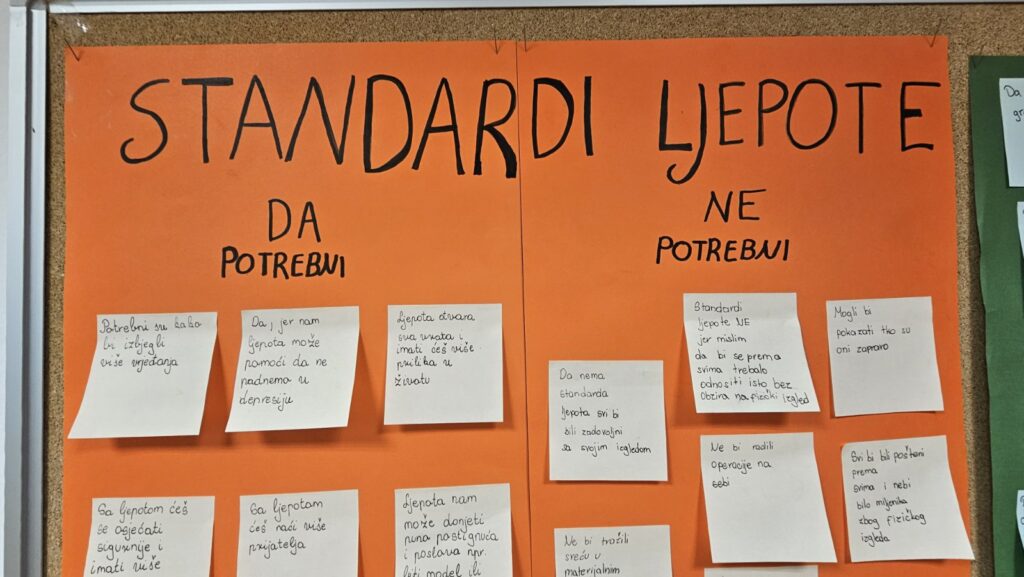 STANDARDI LJEPOTE
DA
POTREBNI
Potrebni su kako
bi izbjegli
više vrjeđanja
Da, jer nam
ljepota može
pomoći da ne
padnemo u
depresiju
Ljepota otvara
sva vrata i
imati ćeš više
prilika u
životu
Sa ljepotom ćeš
se osjećati
sigurnije i
imati više
Sa ljepotom
ćeš naći više
prijatelja
Ljepota nam
može donjeti
puno postignuća
i poslova npr.
biti model ili
NE
POTREBNI
Da nema
standarda
ljepota svi bi
bili zadovoljni
sa svojim izgledom
Standardi
ljepote NE
jer mislim
da bi se prema
svima trebalo
odnositi isto bez
Obzira na fizički izgled
Mogli bi
pokazati tko su
oni zapravo
Ne bi radili
operacije na
sebi
Svi bi bili pošteni
prema
svima i nebi
bilo miljenika
zbog fizičkog
izgleda
Ne bi tražili
sreću u
materijalnim
Da